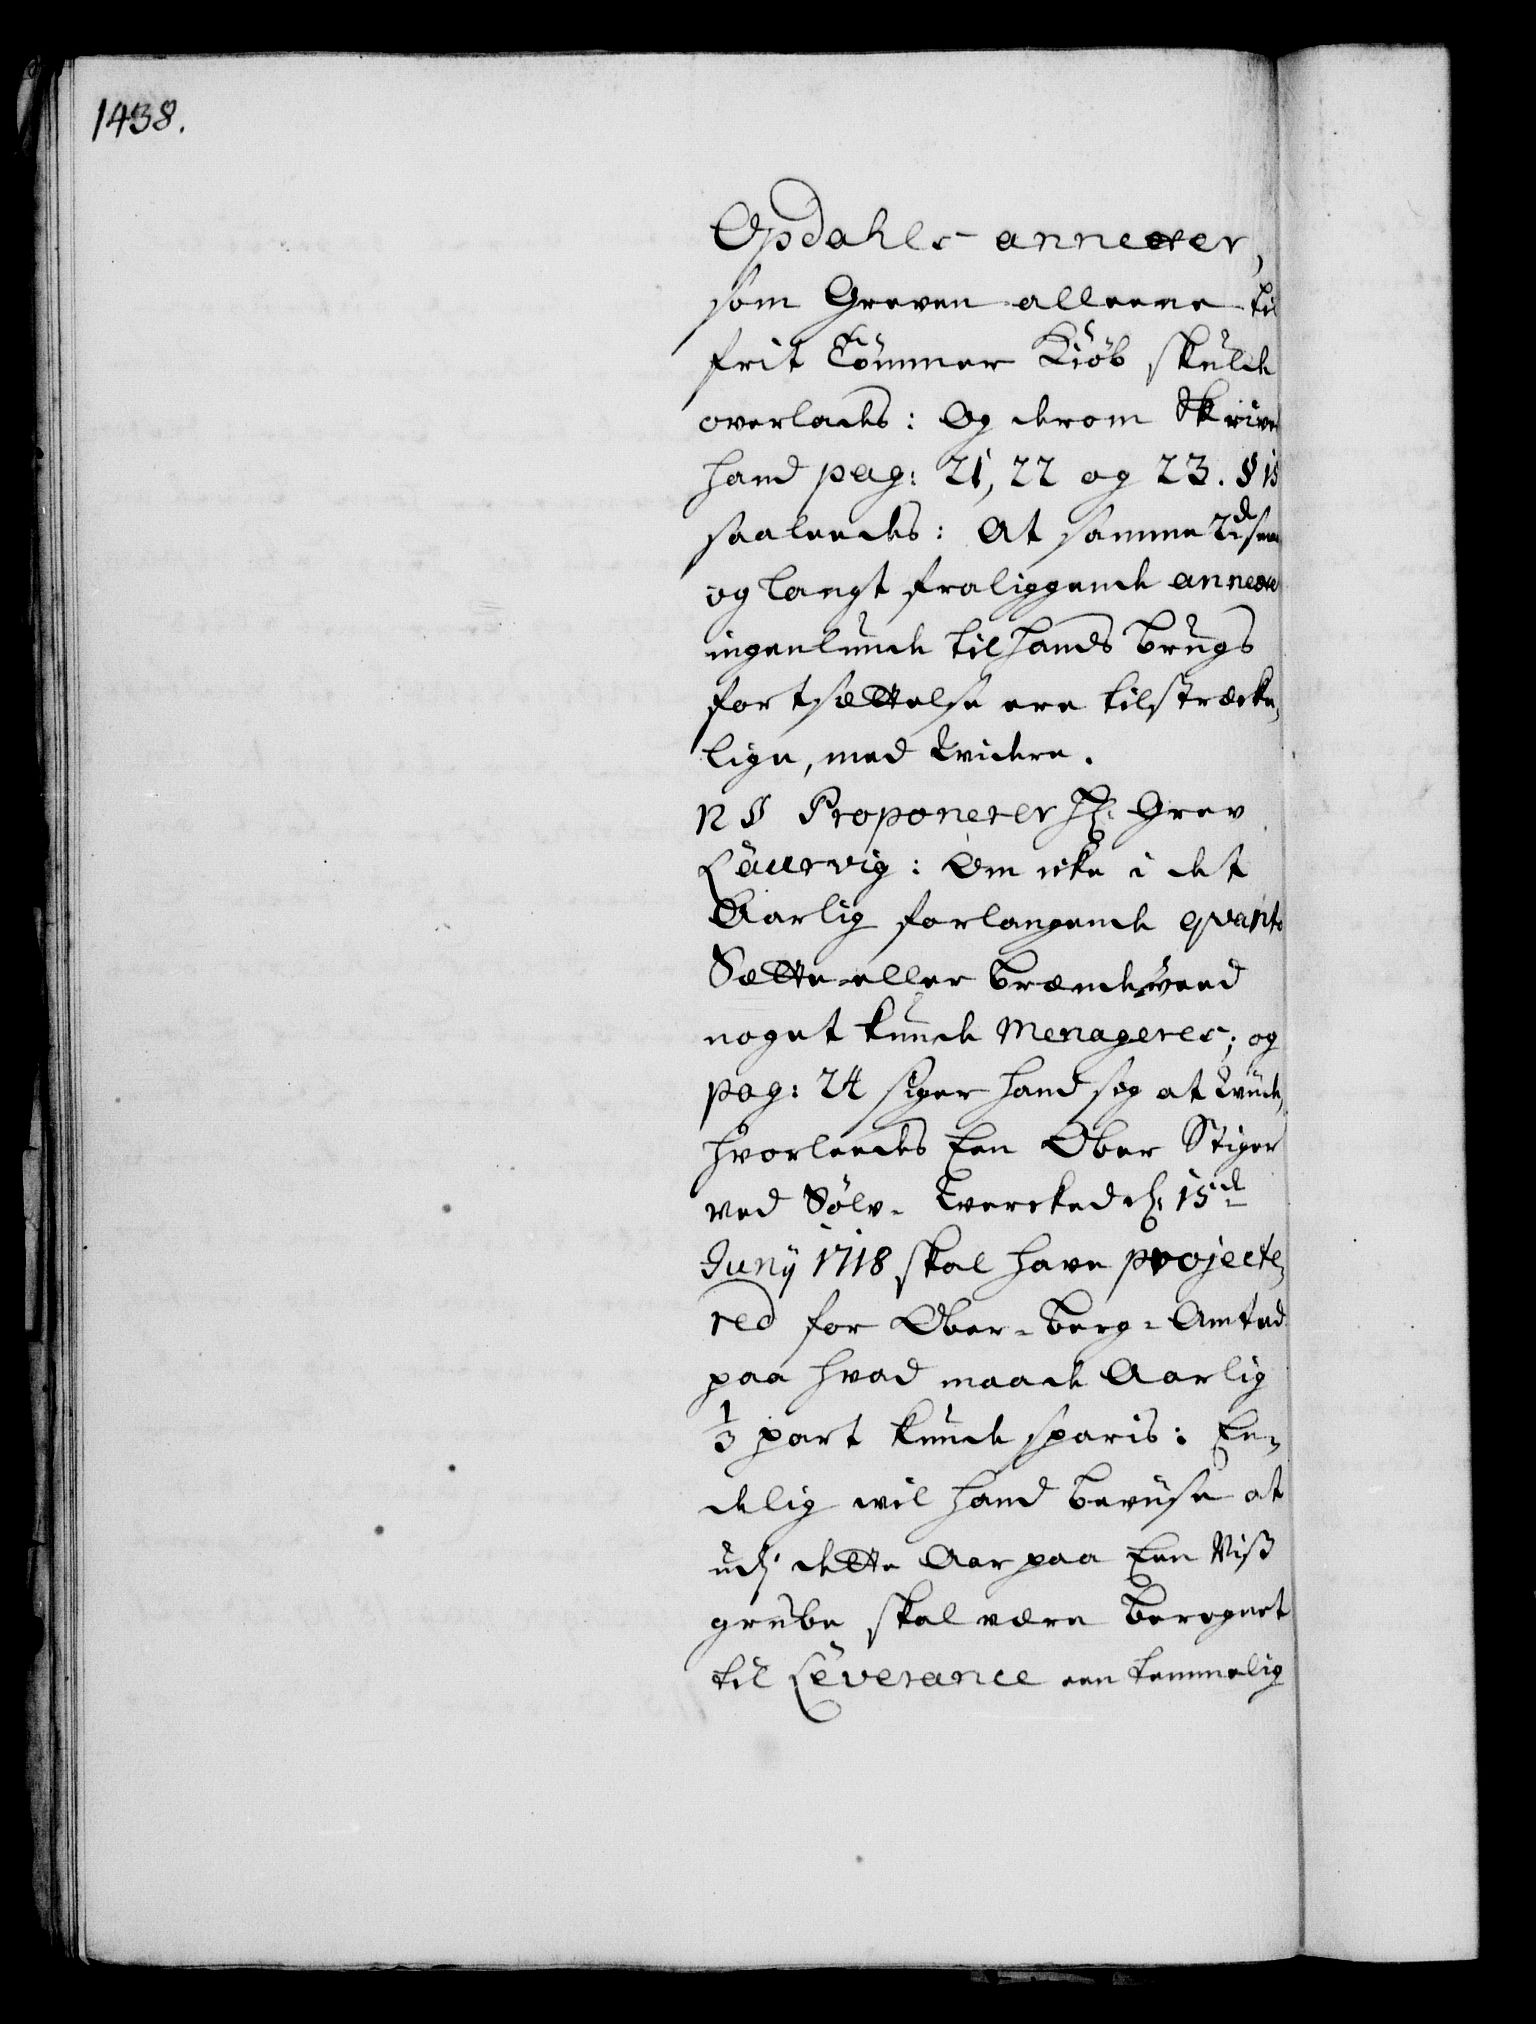 1438.
Opdahls annexer,
som Greven alleene til
frit Tömmer Kiöb skulde
overlades: Og derom Skriver
hand pag: 21, 22 og 23. §
saaleedes: At samme
og langt fraliggende annexer
ingenlunde til hands brugs
fortsættelse ere tilstrecke,
lige, med widere.
12 § Proponerer Hr: Grev
Laurvig: Om icke i det
Aarlig forlangende qvanto
Sætte eller brændeweed
noget kunde Menageres; og
pag: 24 siger hand sig at wiide,
hvorleedes Een Ober Stiger
ved Sölv-Wercked d: 15de
Junij 1718 skal have projecte,
red for Ober-berg-Amted
paa hvad maade Aarlig
1/3 part kunde sparis: En,
delig wil hand beviise at
udj dette Aar paa Een Wiß
grube skal være beregnet
til Leverance een temmelig